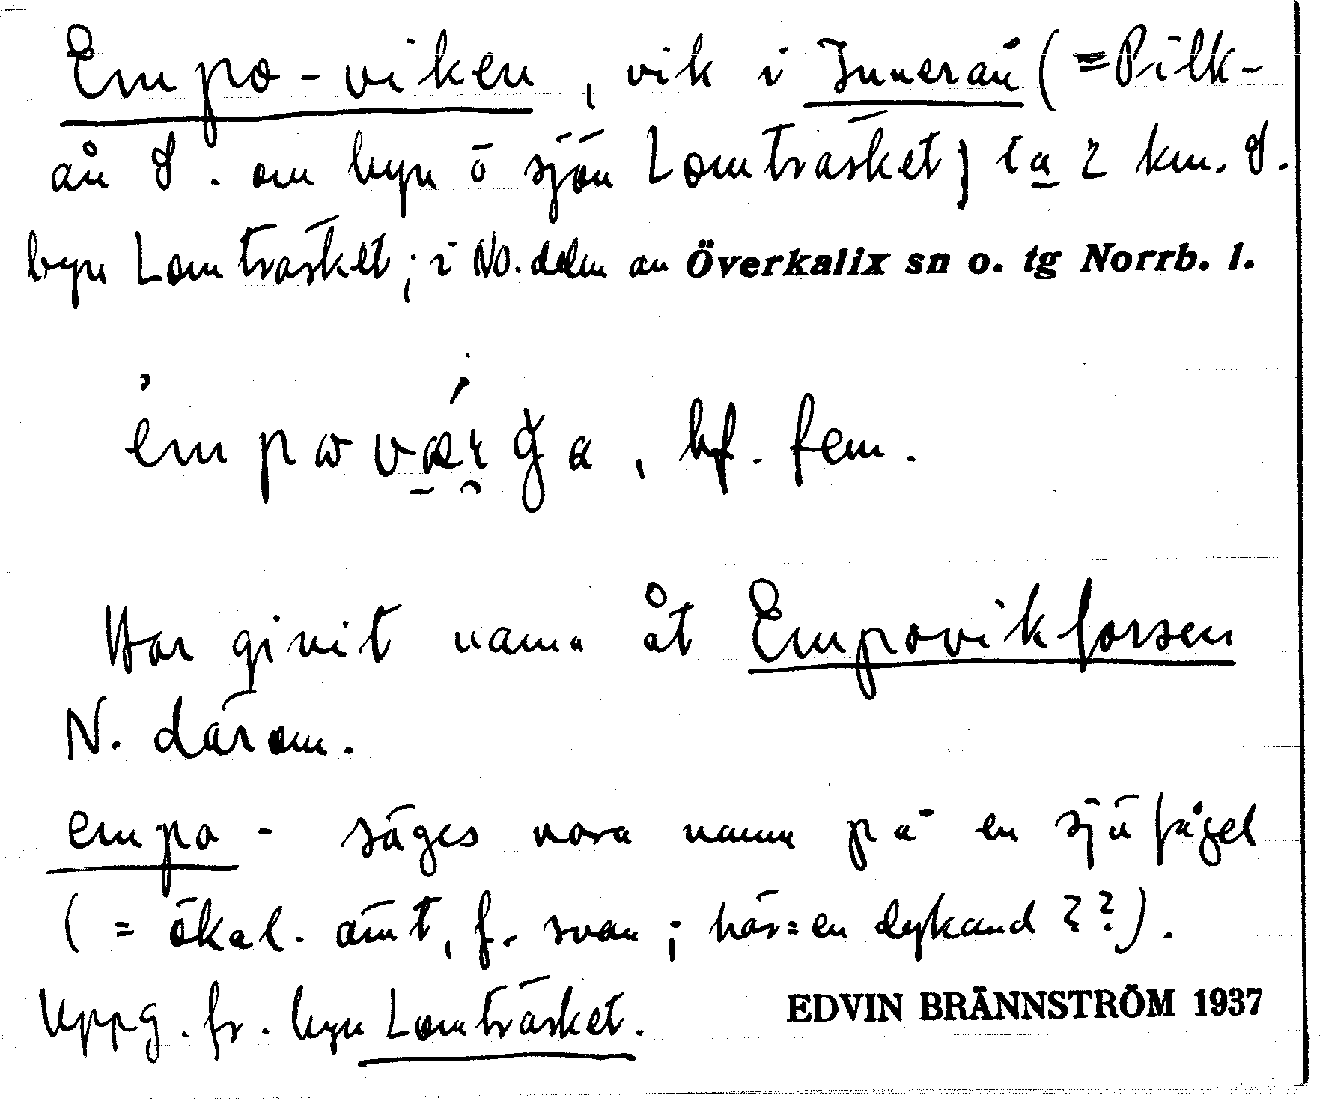 Empo-viken, vik i Innerån (=Pilk-
ån S. om byn o sjön Lomträsket) ca 2 km. S.
byn Lomträsket; i NO. delen av Överkalix sn o. tg Norrb. l.
émpovǽrga, bf. fem.
Har givit namn åt Empovikforsen
N. därom.
empo- säges vara namn på en sjöfågel
(= ökal. ämt, f. svan; här=en dykand ??).
Uppg. fr. byn Lomträsket.
EDVIN BRÄNNSTRÖM 1937